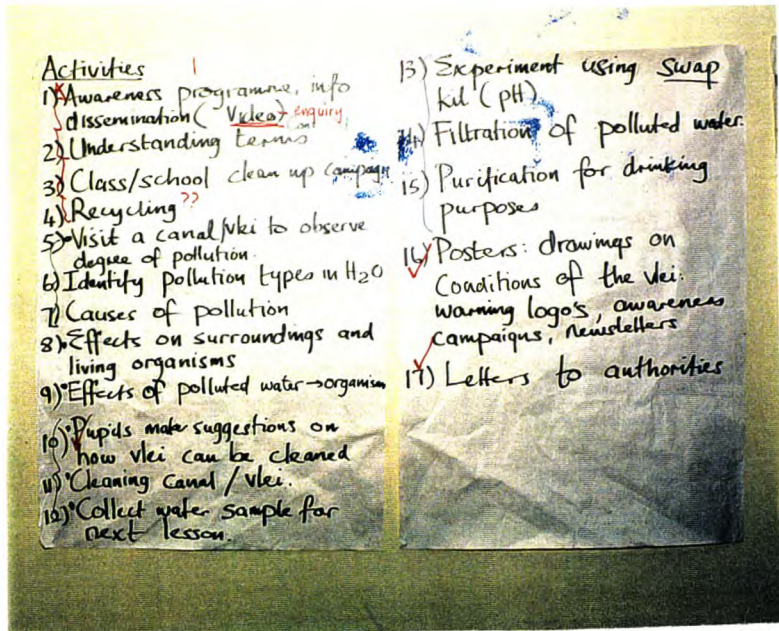 Activities
1) Awareness programme, info
dissemination (Video) enquiry
2) Understanding terms
3) Class/school clean up campaign
4) Recycling ??
5) • Visit a canal/vlei to observe
degree of pollution.
6) Identify pollution types in H2O
7) Causes of pollution
8) • Effects on surroundings and
living organisms
9) • Effects of polluted water → organism
10) • Pupids make suggestions on
how vlei can be cleaned
11) • Cleaning canal / vlei.
12) • Collect water sample for
next lesson.
13) Experiment using swap
kit (pH)
14) Filtration of polluted water.
15) Purification for drinking
purposes
16) Posters: drawings on
Conditions of the vlei.
warning logo's, awareness
campaigns, newsletters
17) Letters to authorities